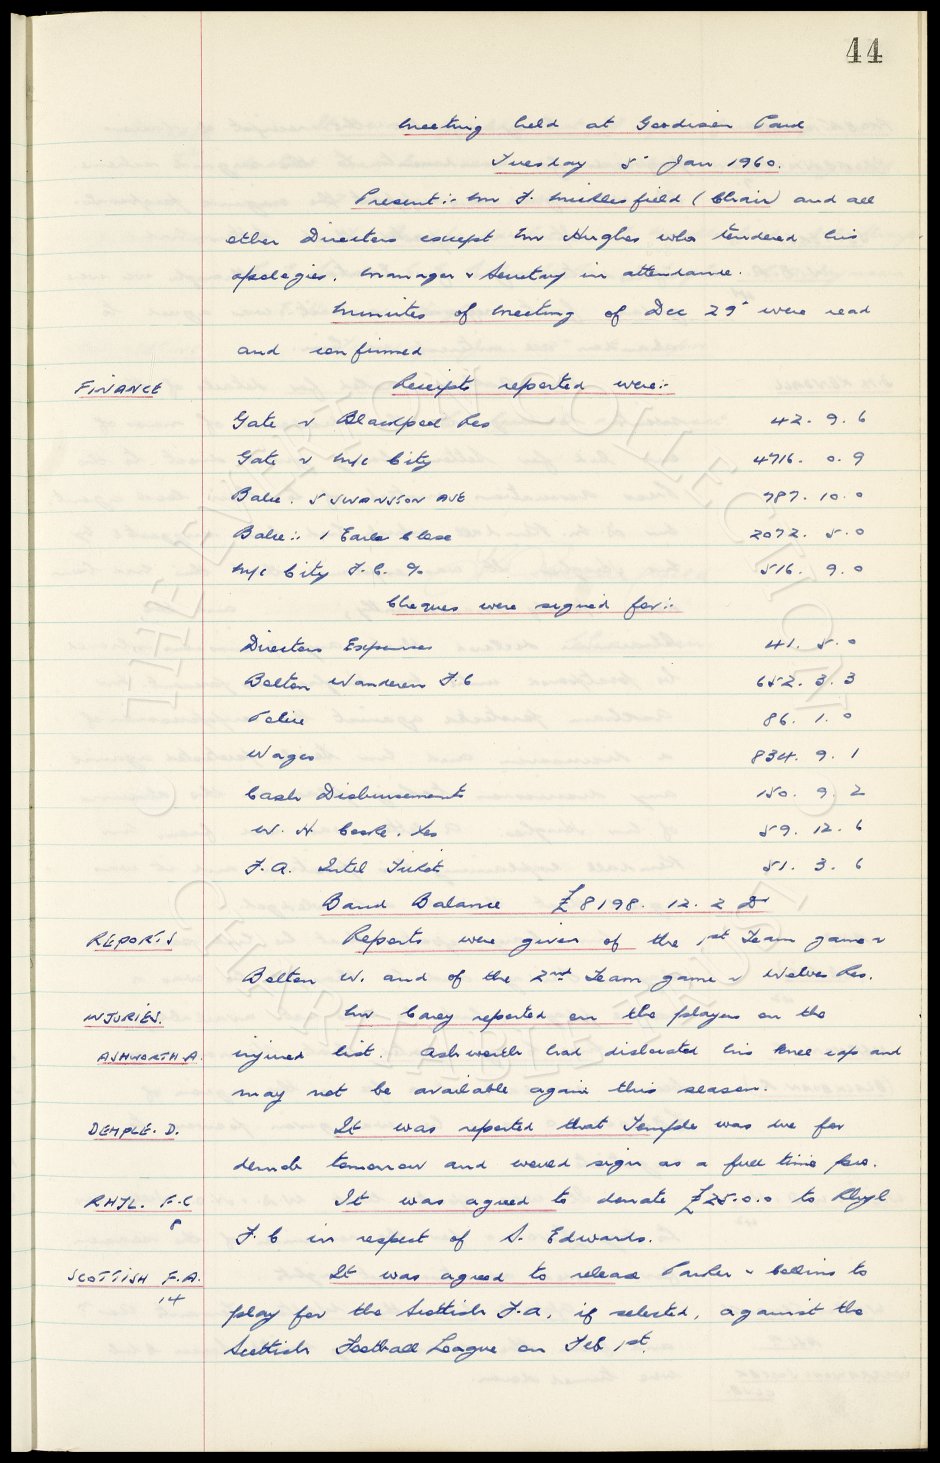 44
Meeting held at Goodison Park
Tuesday 5th Jan 1960.
Present :- Mr F. Micklesfield (Chair) and all
other Directors except Mr Hughes who tendered his
apologies. Manager & Secretary in attendance.
Minutes of Meeting of Dec 29th were read
and confirmed
FINANCE Receipts reported were:-
Gate v Blackpool Res 42. 9. 6
Gate v M/c City 4716. 0. 9
Balce. 5 SWANSSON AVE 787. 10. 0
Balce :- 1 Earls Close 2072. 5. 0
M/c City F.C. % 516. 9. 0
Cheques were signed for:-
Directors Expenses 41. 5. 0
Bolton Wanderers F.C 652. 3. 3
Police 86. 1. 0
Wages 834. 9. 1
Cash Disbursements 150. 9. 2
W. H 59. 12. 6
F.A. Intl Tickets 51. 3. 6
Bank Balance £8198. 12. 2 Dr
REPORTS Reports were given of the 1st Team game v
Bolton W. and of the 2nd Team game v Wolves Res.
INJURIES. Mr Carey reported on the players on the
ASHWORTH A. injured list. Ashworth had dislocated his knee cap and
may not be available again this season.
TEMPLE. D. It was reported that Temple was due for
demob tomorrow and would sign as a full time pro.
RHYL. F.C It was agreed to donate £25.0.0 to Rhyl
8 F.C in respect of S. Edwards.
SCOTTISH F.A. It was agreed to release Parker & Collins to
14 play for the Scottish F.A. if selected, against the
Scottish Football League on Feb 1st.